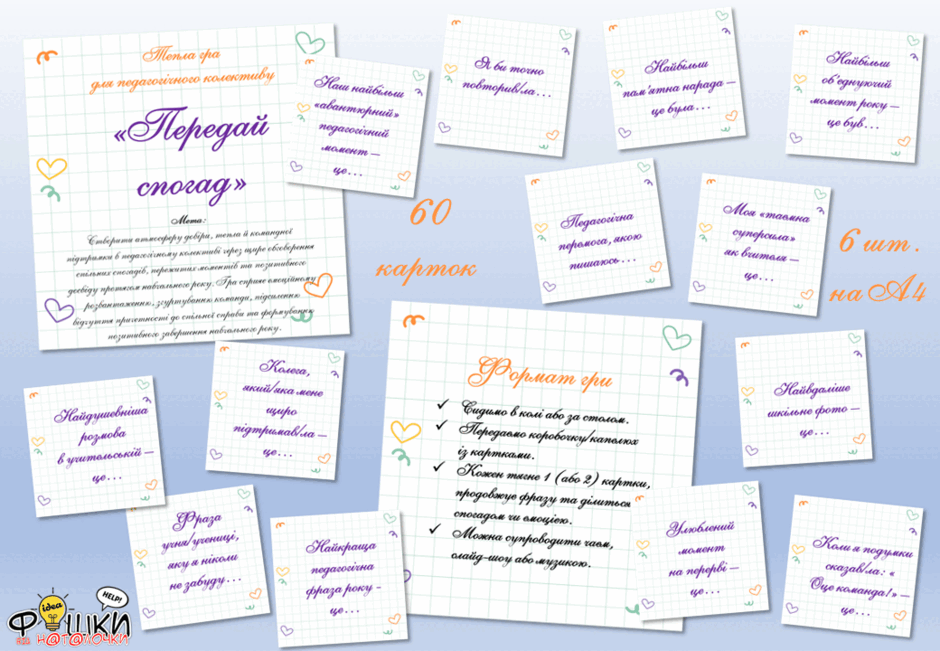 Тепла гра
для педагогічного колективу
«Передай
спогад»
Мета:
Створити атмосферу довіри, тепла й командної
підтримки в педагогічному колективі через щире обговорення
спільних спогадів, пережитих моментів та позитивного
досвіду протягом навчального року. Гра сприяє емоційному
розвантаженню, згуртуванню команди, підсиленню
відчуття причетності до спільної справи та формуванню
позитивного завершення навчального року.
Наш найбільш
«авантюрний»
педагогічний
момент –
це...
Я би точно
повторив/ла...
Найбільш
пам'ятна нарада –
це була...
Найбільш
об'єднуючий
момент року –
це був...
60
карток
Педагогічна
перемога, якою
пишаюсь...
Моя «таємна
суперсила»
як вчителя –
це...
6 шт.
на А4
Найдушевніша
розмова
в учительській –
це...
Колега,
який/яка мене
щиро
підтримав/ла –
це...
Формат гри
✓ Сидимо в колі або за столом.
✓ Передаємо коробочку/капелюх
із картками.
✓ Кожен тягне 1 (або 2) картки,
продовжує фразу та ділиться
спогадом чи емоцією.
✓ Можна супроводити чаєм,
слайд-шоу або музикою.
Найвдаліше
шкільне фото –
це...
Фраза
учня/учениці,
яку я ніколи
не забуду...
Найкраща
педагогічна
фраза року -
це...
Улюблений
момент
на перерві –
це...
Коли я подумки
сказав/ла: «
Оце команда!» –
це...
idea
HELP!
ФішКИ
від Н@Т@ЛОЧКИ